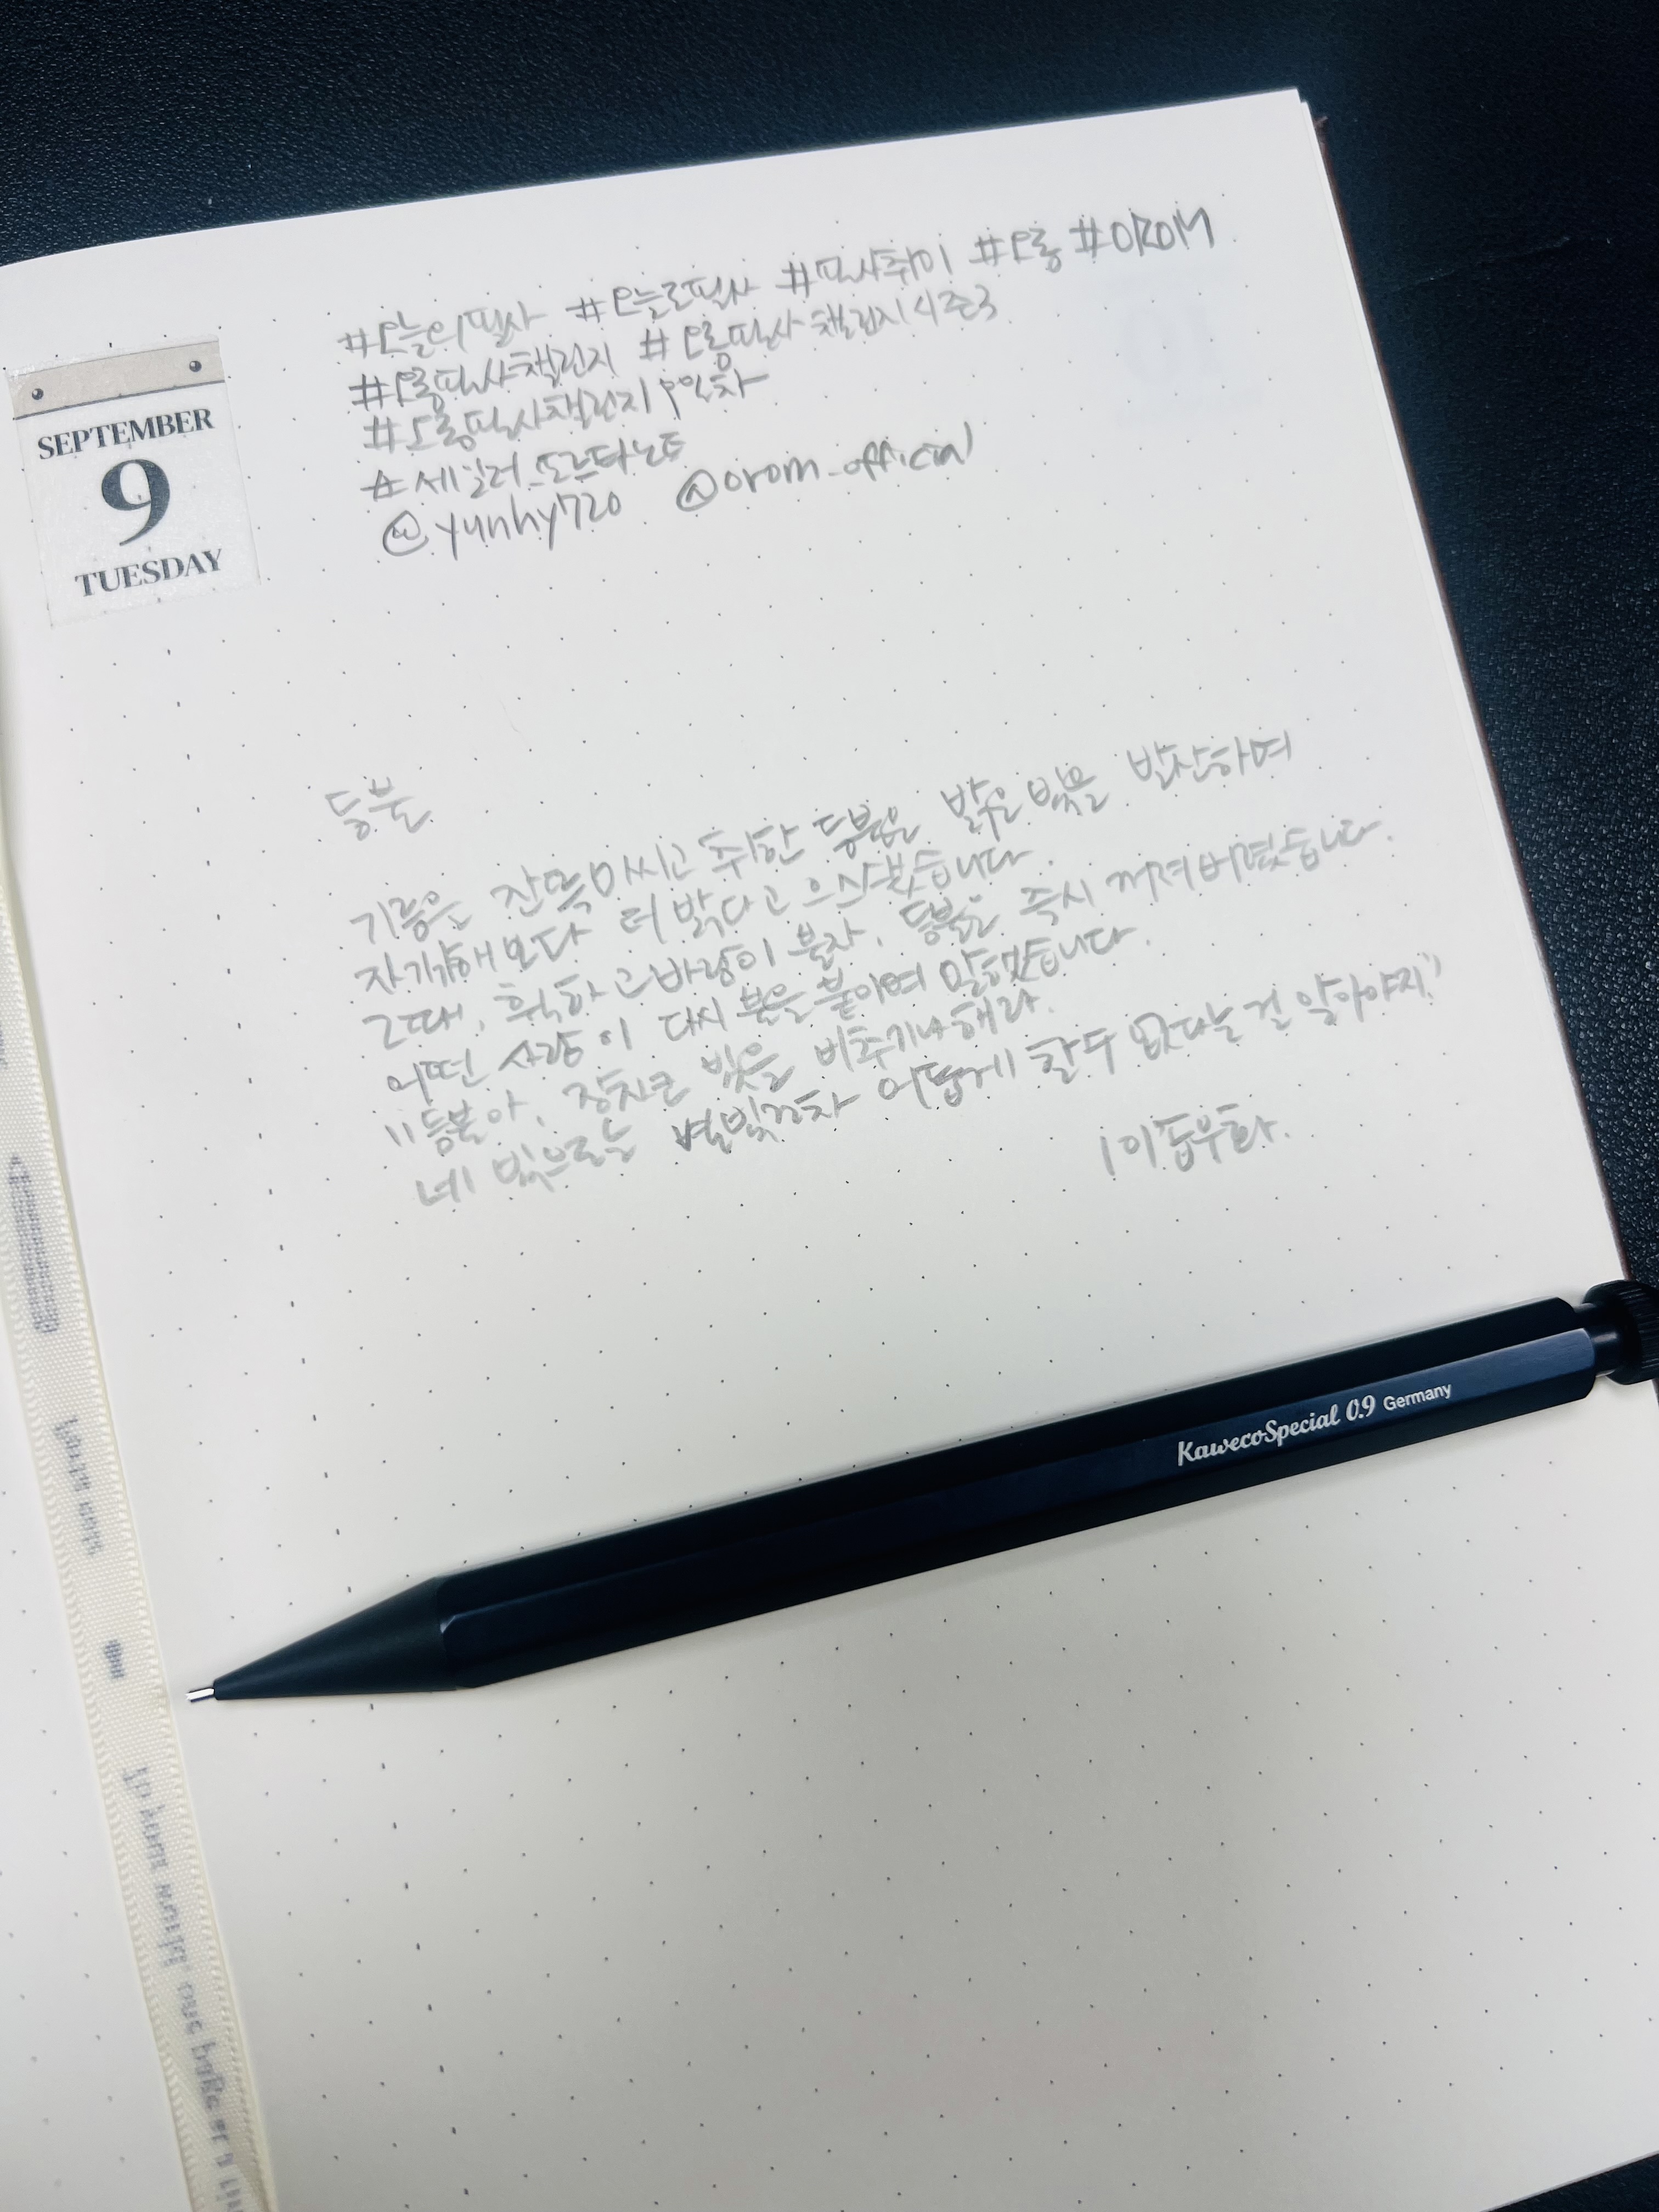 SEPTEMBER
9
TUESDAY
#오늘의필사 #오늘도필사 #필사취미 #오롬 #OROM
#오롬필사챌린지 #오롬필사챌린지시즌3
#오롬필사챌린지9일차
#세일러_또르타노트
@yunhy720 @orom_official
등불
기름을 잔뜩 마시고 취한 등불은 밝은 빛을 발산하며
자기가 해보다 더 밝다고 으스댔습니다.
그때, 휙하고 바람이 불자, 등불은 즉시 꺼져버렸습니다.
어떤 사람이 다시 불을 붙이며 말했습니다.
"등불아, 잠자코 빛을 비추기나 해라.
네 빛으로는 별빛조차 어둡게 할 수 없다는 걸 알아야지."
| 이솝우화.
KawecoSpecial 0.9 Germany